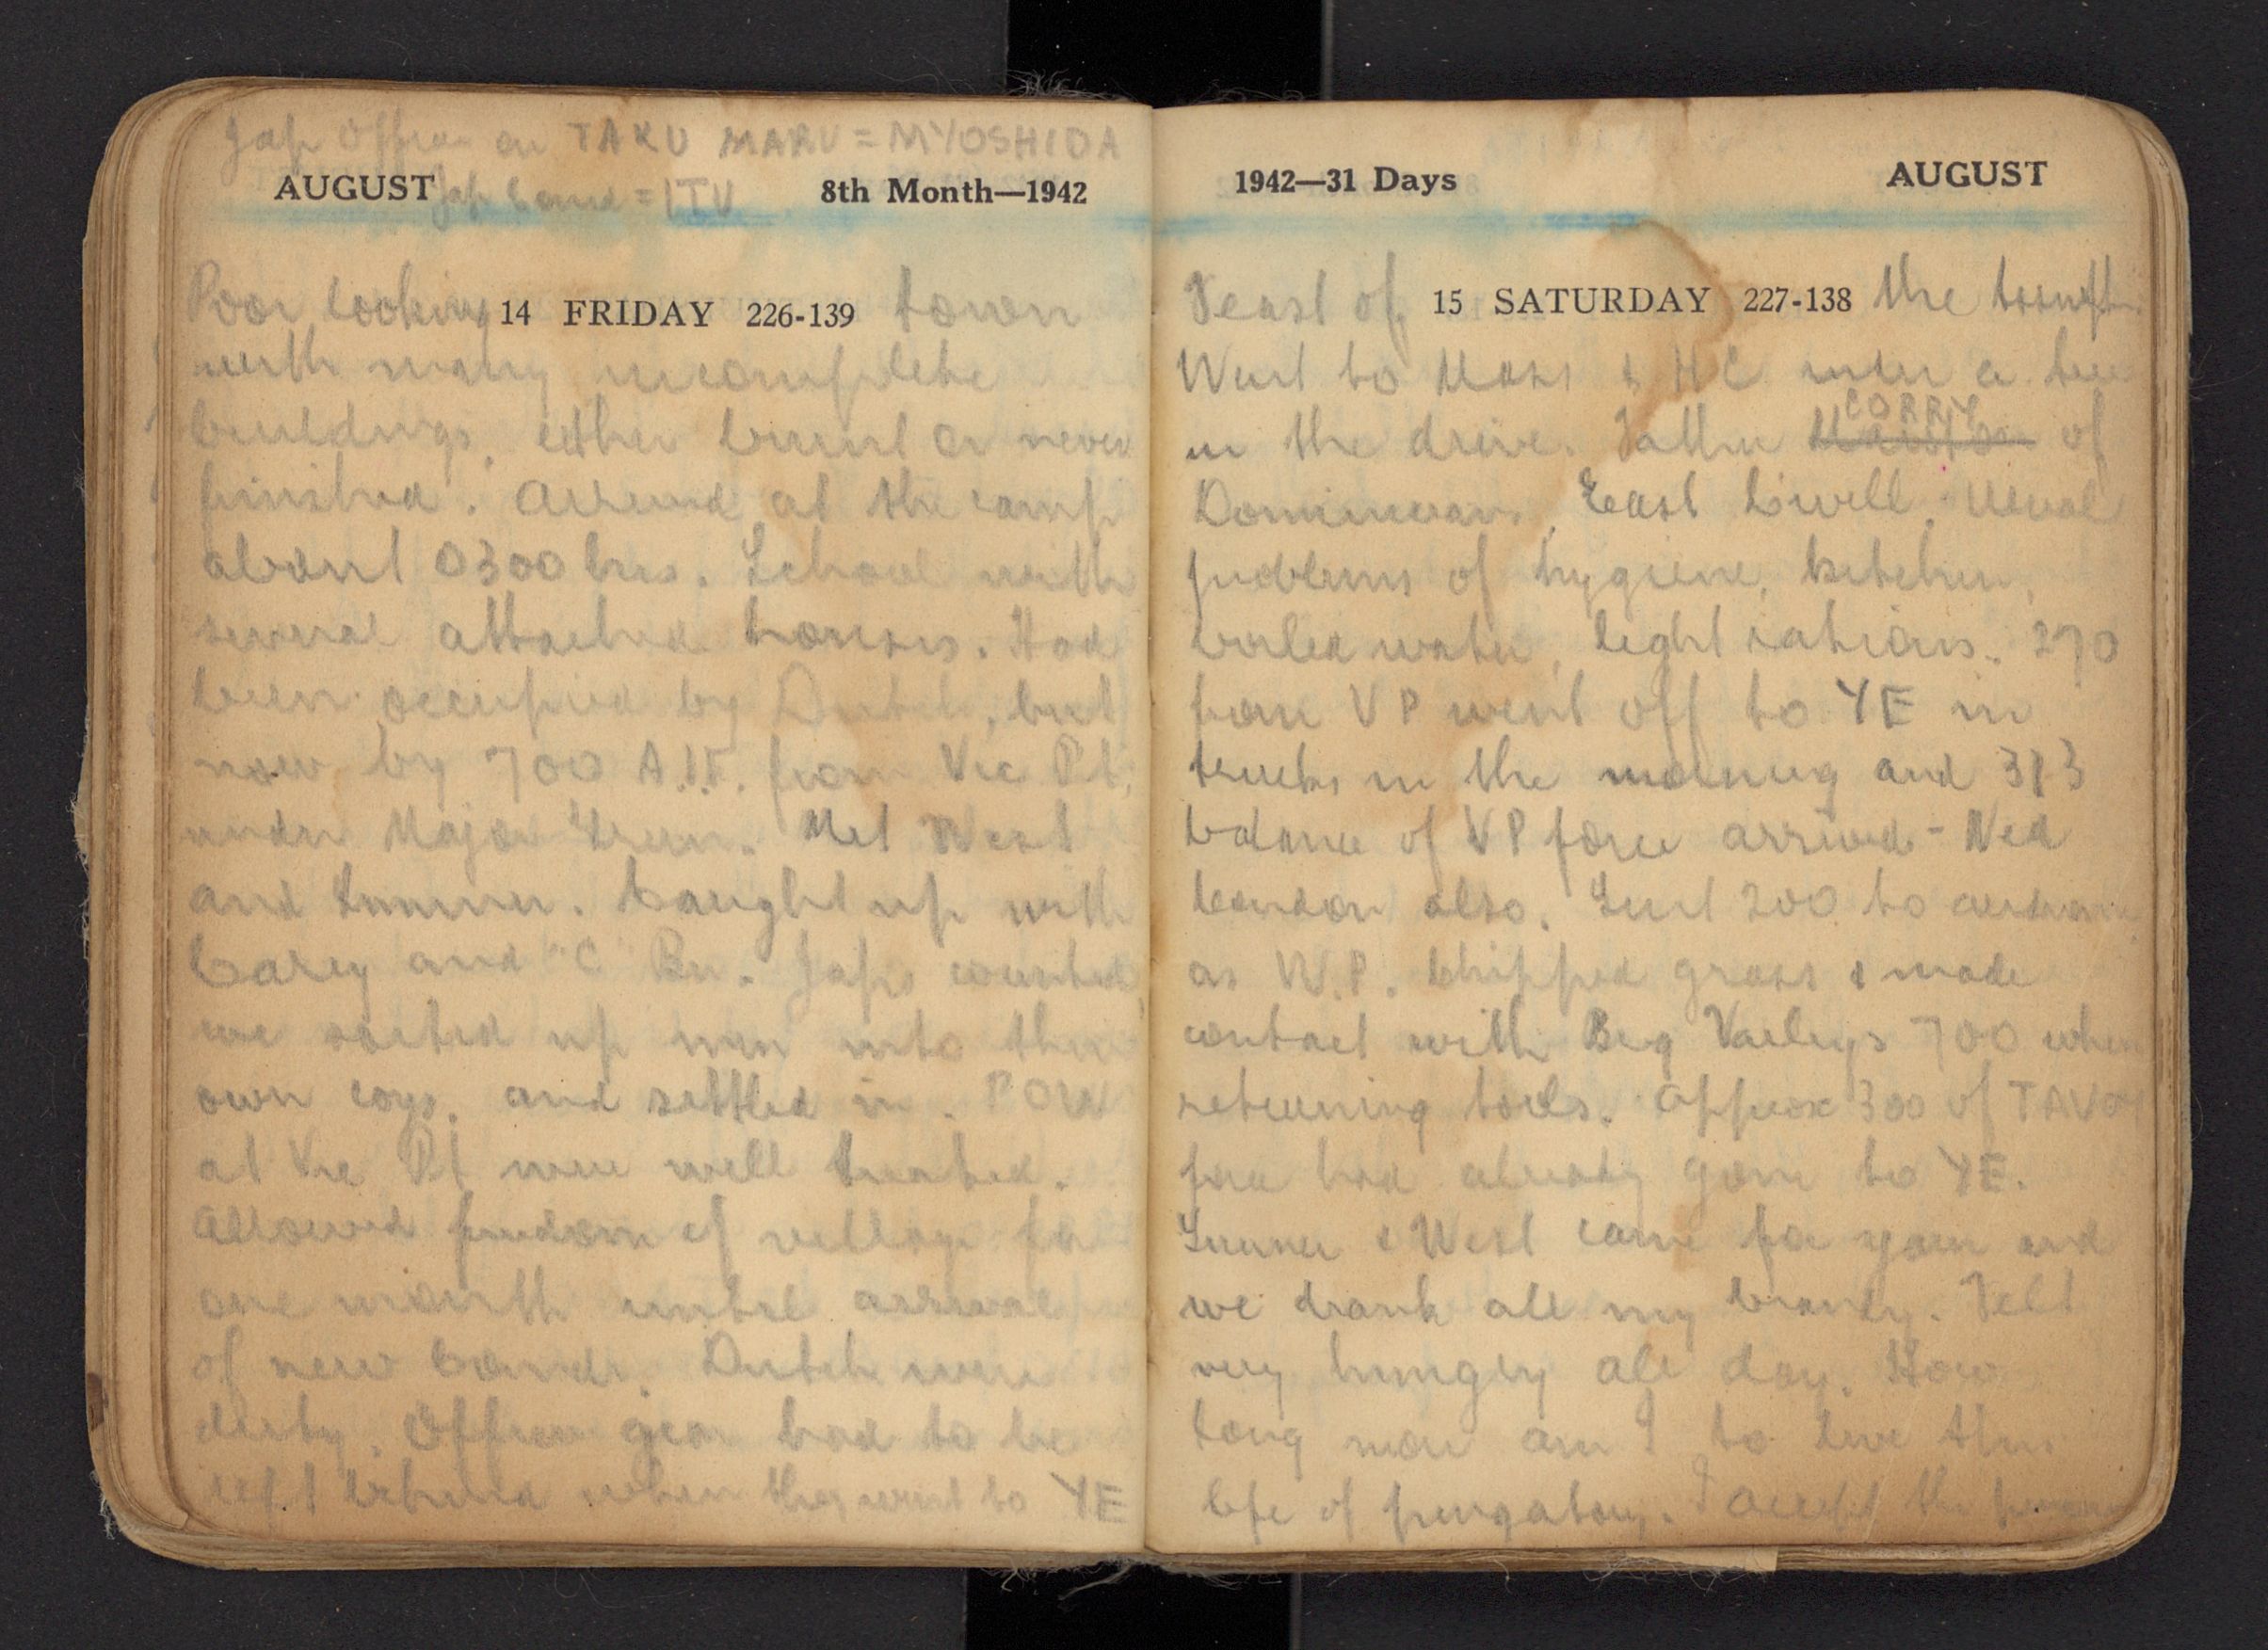 Jap Officer on TAKU MARU = MYOSHIDA
AUGUST 8th Month—1942
Jap = ITU
Poor looking 14 FRIDAY 226-139 town
with many incomplete
buildings, either burnt or never
finished. Arrived at the camp
about 0300 hrs. School with
several attached houses. Had
been occupied by Dutch, but
now by 700 A.I.F. from Vic Pt,
under Major Green. Met West
and . Caught up with
Carey and "C" Bn. Japs counted
we sorted up men into their
own coys. and settled in. POW
at Vic Pt were well treated.
Allowed freedom of village for
one month until arrival
of new . Dutch were
dirty. Officer gear had to be
left behind when they went to YE
1942—31 Days AUGUST
Feast of 15 SATURDAY 227-138 the
Went to Mass & HC under a tree
in the drive. Father CORRY of
Dominican, East . Usual
problems of hygiene, kitchen,
boiled water, light rations. 270
from VP went off to YE in
trucks in the morning and 313
balance of VP force arrived - Ned
also. Sent 200 to
as W.P. Chipped grass & made
contact with Brig Varleys 700 when
returning tools. Approx 300 of TAVOY
force had already gone to YE.
& West came for yarn and
we drank all my brandy. Felt
very hungry all day. How
long more am I to live this
life of purgatory. I accept the